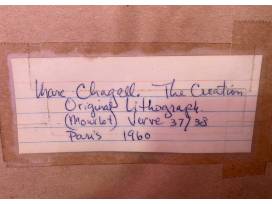 Marc Chagall. The Creation
Original Lithograph
(Mourlot) Verve 37/38
Paris 1960